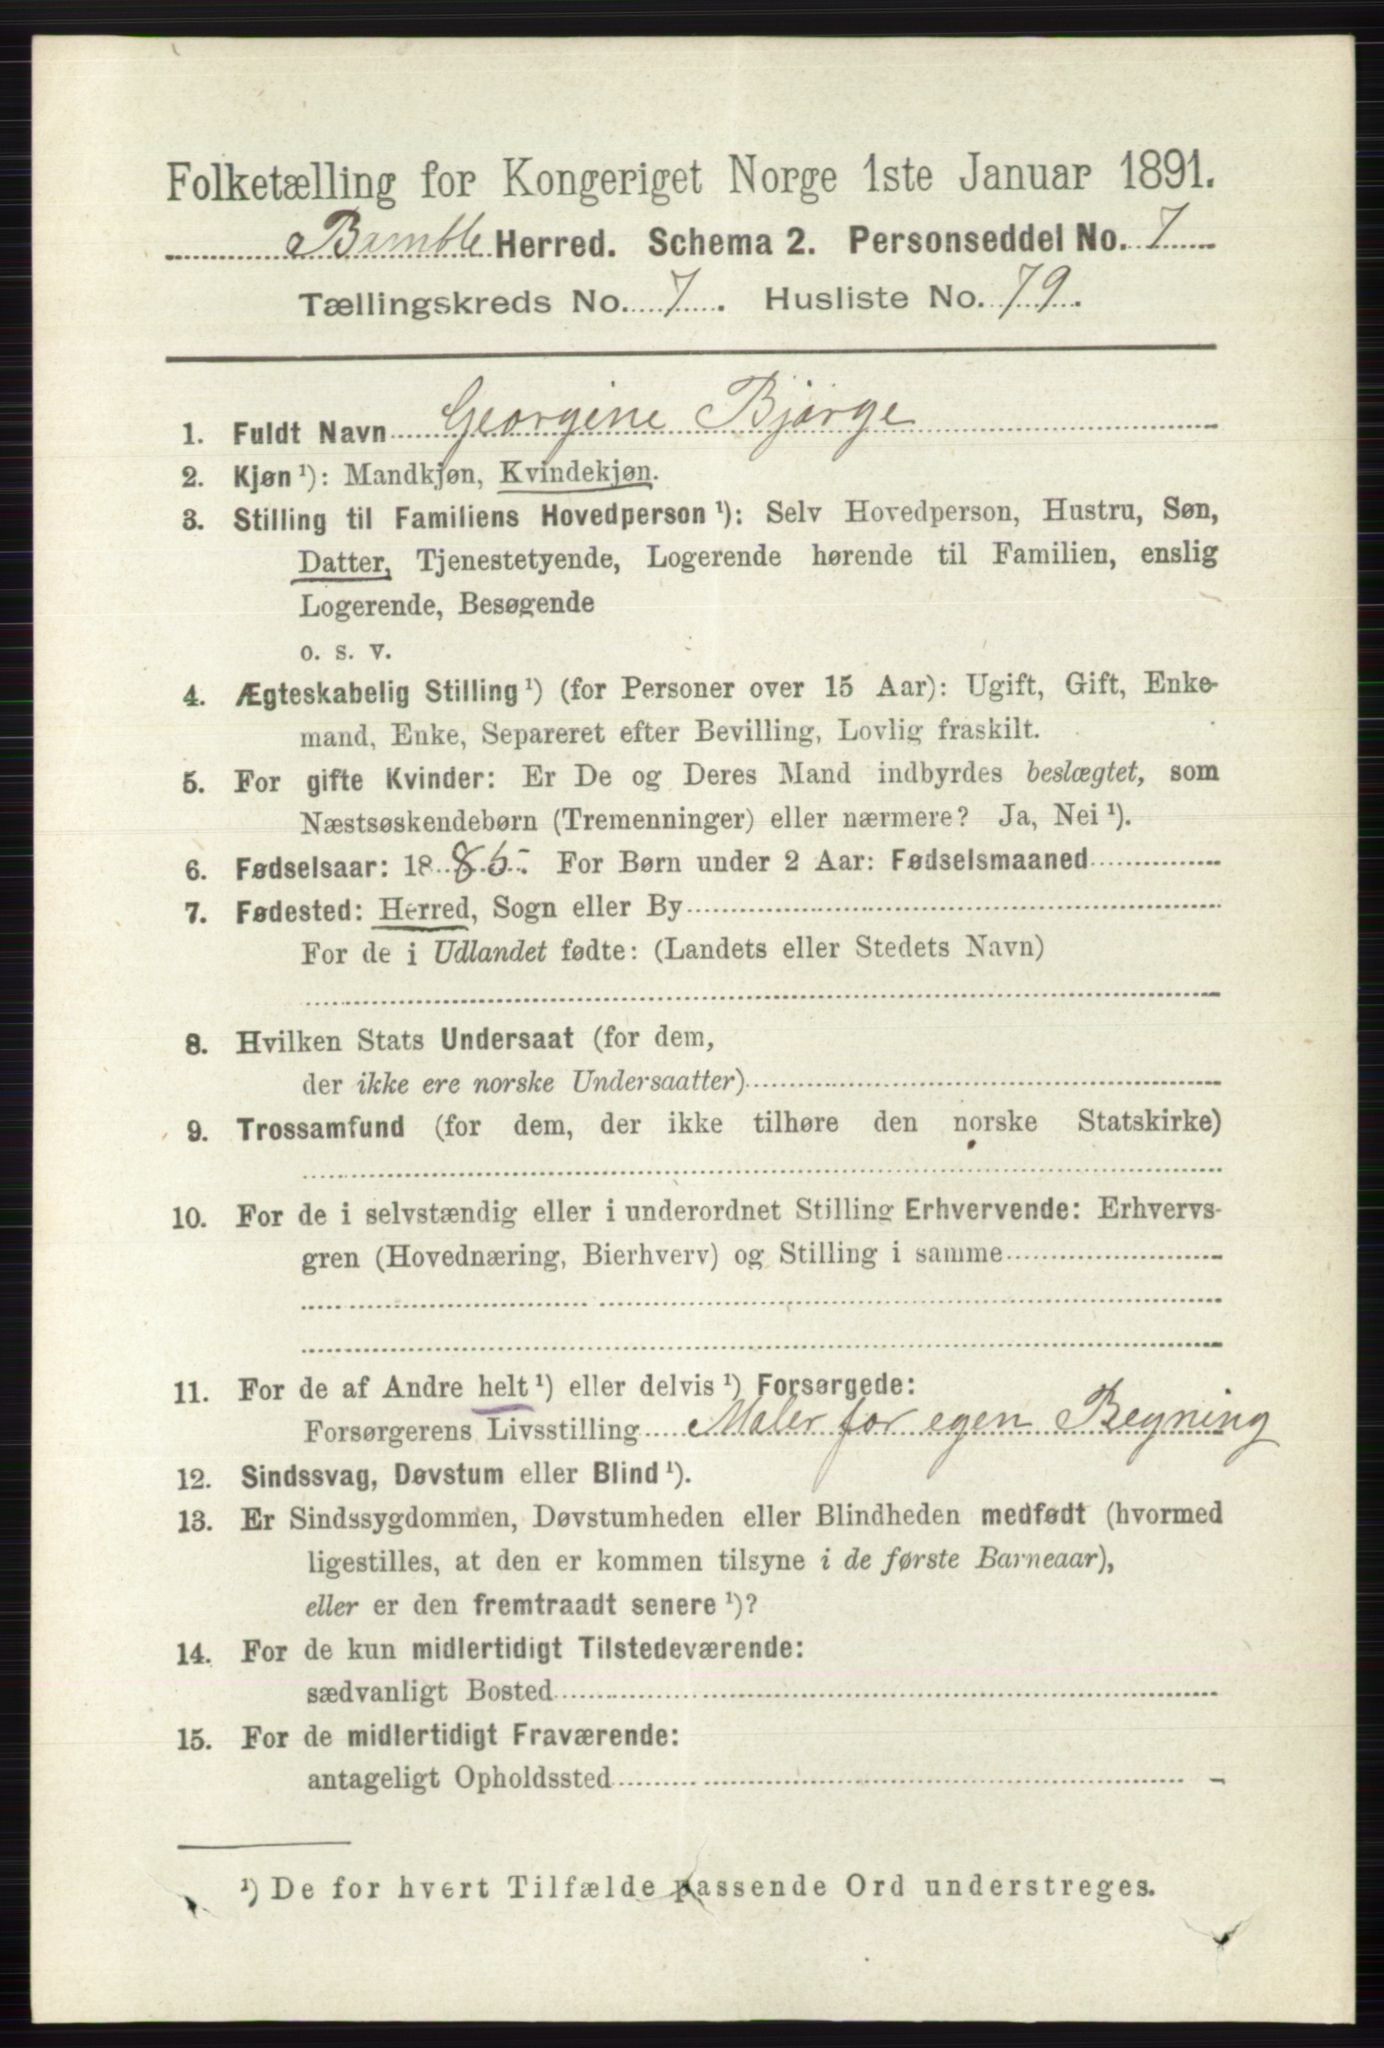 Folketælling for Kongeriget Norge 1ste Januar 1891.
Bamble Herred. Schema 2. Personseddel No. 7
Tællingskreds No. 7. Husliste No. 79.
1. Fuldt Navn Georgine Bjørge
2. Kjøn ¹): Mandkjøn, Kvindekjøn.
3. Stilling til Familiens Hovedperson ¹): Selv Hovedperson, Hustru, Søn,
Datter, Tjenestetyende, Logerende hørende til Familien, enslig
Logerende, Besøgende
o. s. v.
4. Ægteskabelig Stilling ¹) (for Personer over 15 Aar): Ugift, Gift, Enke-
mand, Enke, Separeret efter Bevilling, Lovlig fraskilt.
5. For gifte Kvinder: Er De og Deres Mand indbyrdes beslægtet, som
Næstsøskendebørn (Tremenninger) eller nærmere? Ja, Nei ¹).
6. Fødselsaar: 1885. For Børn under 2 Aar: Fødselsmaaned
7. Fødested: Herred, Sogn eller By
For de i Udlandet fødte: (Landets eller Stedets Navn)
8. Hvilken Stats Undersaat (for dem,
der ikke ere norske Undersaatter)
9. Trossamfund (for dem, der ikke tilhøre den norske Statskirke)
10. For de i selvstændig eller i underordnet Stilling Erhvervende: Erhvervs-
gren (Hovednæring, Bierhverv) og Stilling i samme
11. For de af Andre helt ¹) eller delvis ¹) Forsørgede:
Forsørgerens Livsstilling Maler for egen Regning
12. Sindssvag, Døvstum eller Blind ¹).
13. Er Sindssygdommen, Døvstumheden eller Blindheden medfødt (hvormed
ligestilles, at den er kommen tilsyne i de første Barneaar),
eller er den fremtraadt senere ¹)?
14. For de kun midlertidigt Tilstedeværende:
sædvanligt Bosted
15. For de midlertidigt Fraværende:
antageligt Opholdssted
¹) De for hvert Tilfælde passende Ord understreges.